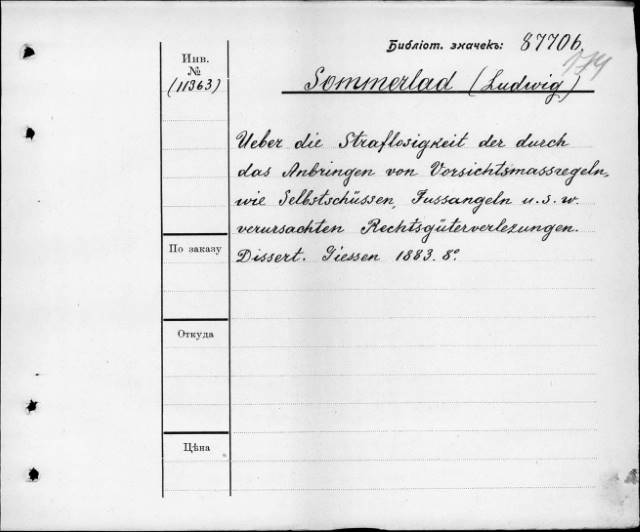 Библіот. значекъ: 87706.
174
Инв.
№
(11363)
Sommerlad (Ludwig)
Ueber die Straflosigkeit der durch
das Anbringen von Vorsichtsmassregeln,
wie Selbstschüssen, Fussangeln u.s.w.
verursachten Rechtsgüterverlezungen.
Dissert. Giessen 1883. 8°.
По заказу
Откуда
Цѣна